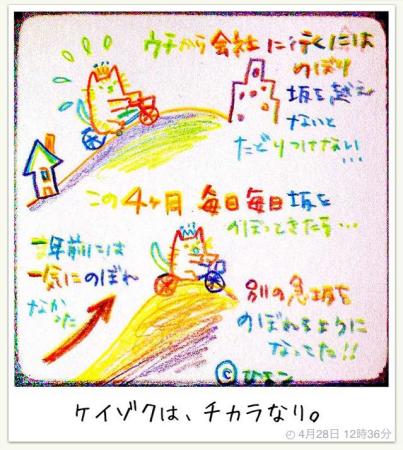 ウチから会社に行くには
のぼり
坂を越え
ないと
たどりつけない...
この4ヶ月 毎日毎日坂を
のぼってきたら...
年前には
一気にのぼれ
なかった
別の急坂を
のぼれるように
なってた!!
©
ケイゾクは、チカラなり。
4月28日 12時36分